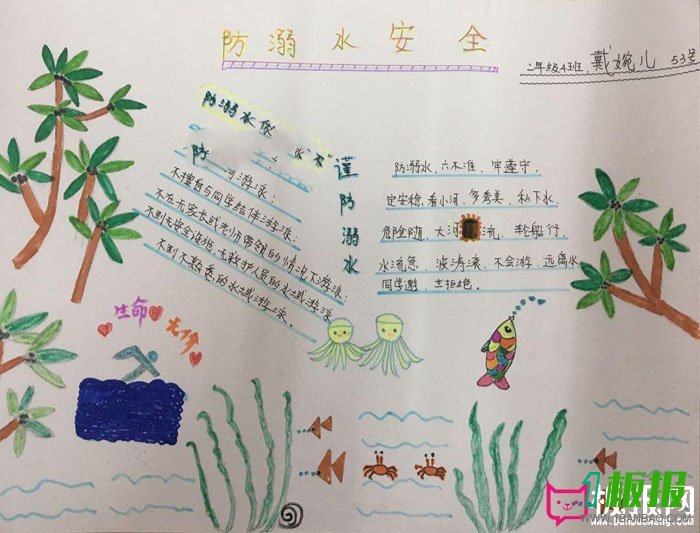 防溺水安全
二年级4班 戴婉儿 53号
防溺水
谨防溺水
防 游泳
不擅自与同学结伴游泳；
不在无家长或老师带领的情况下游泳；
不到无安全设施、无救护人员的水域游泳
不到不熟悉的水域游泳。
防溺水，六不准，牢遵守，
定安稳，看小河，多秀美，私下水，
危险随，大河 流，轮船行，
水流急，波涛滚，不会游，远离水
同学邀，立拒绝。
生命 无价
板报
WWW.1BANBAO.COM